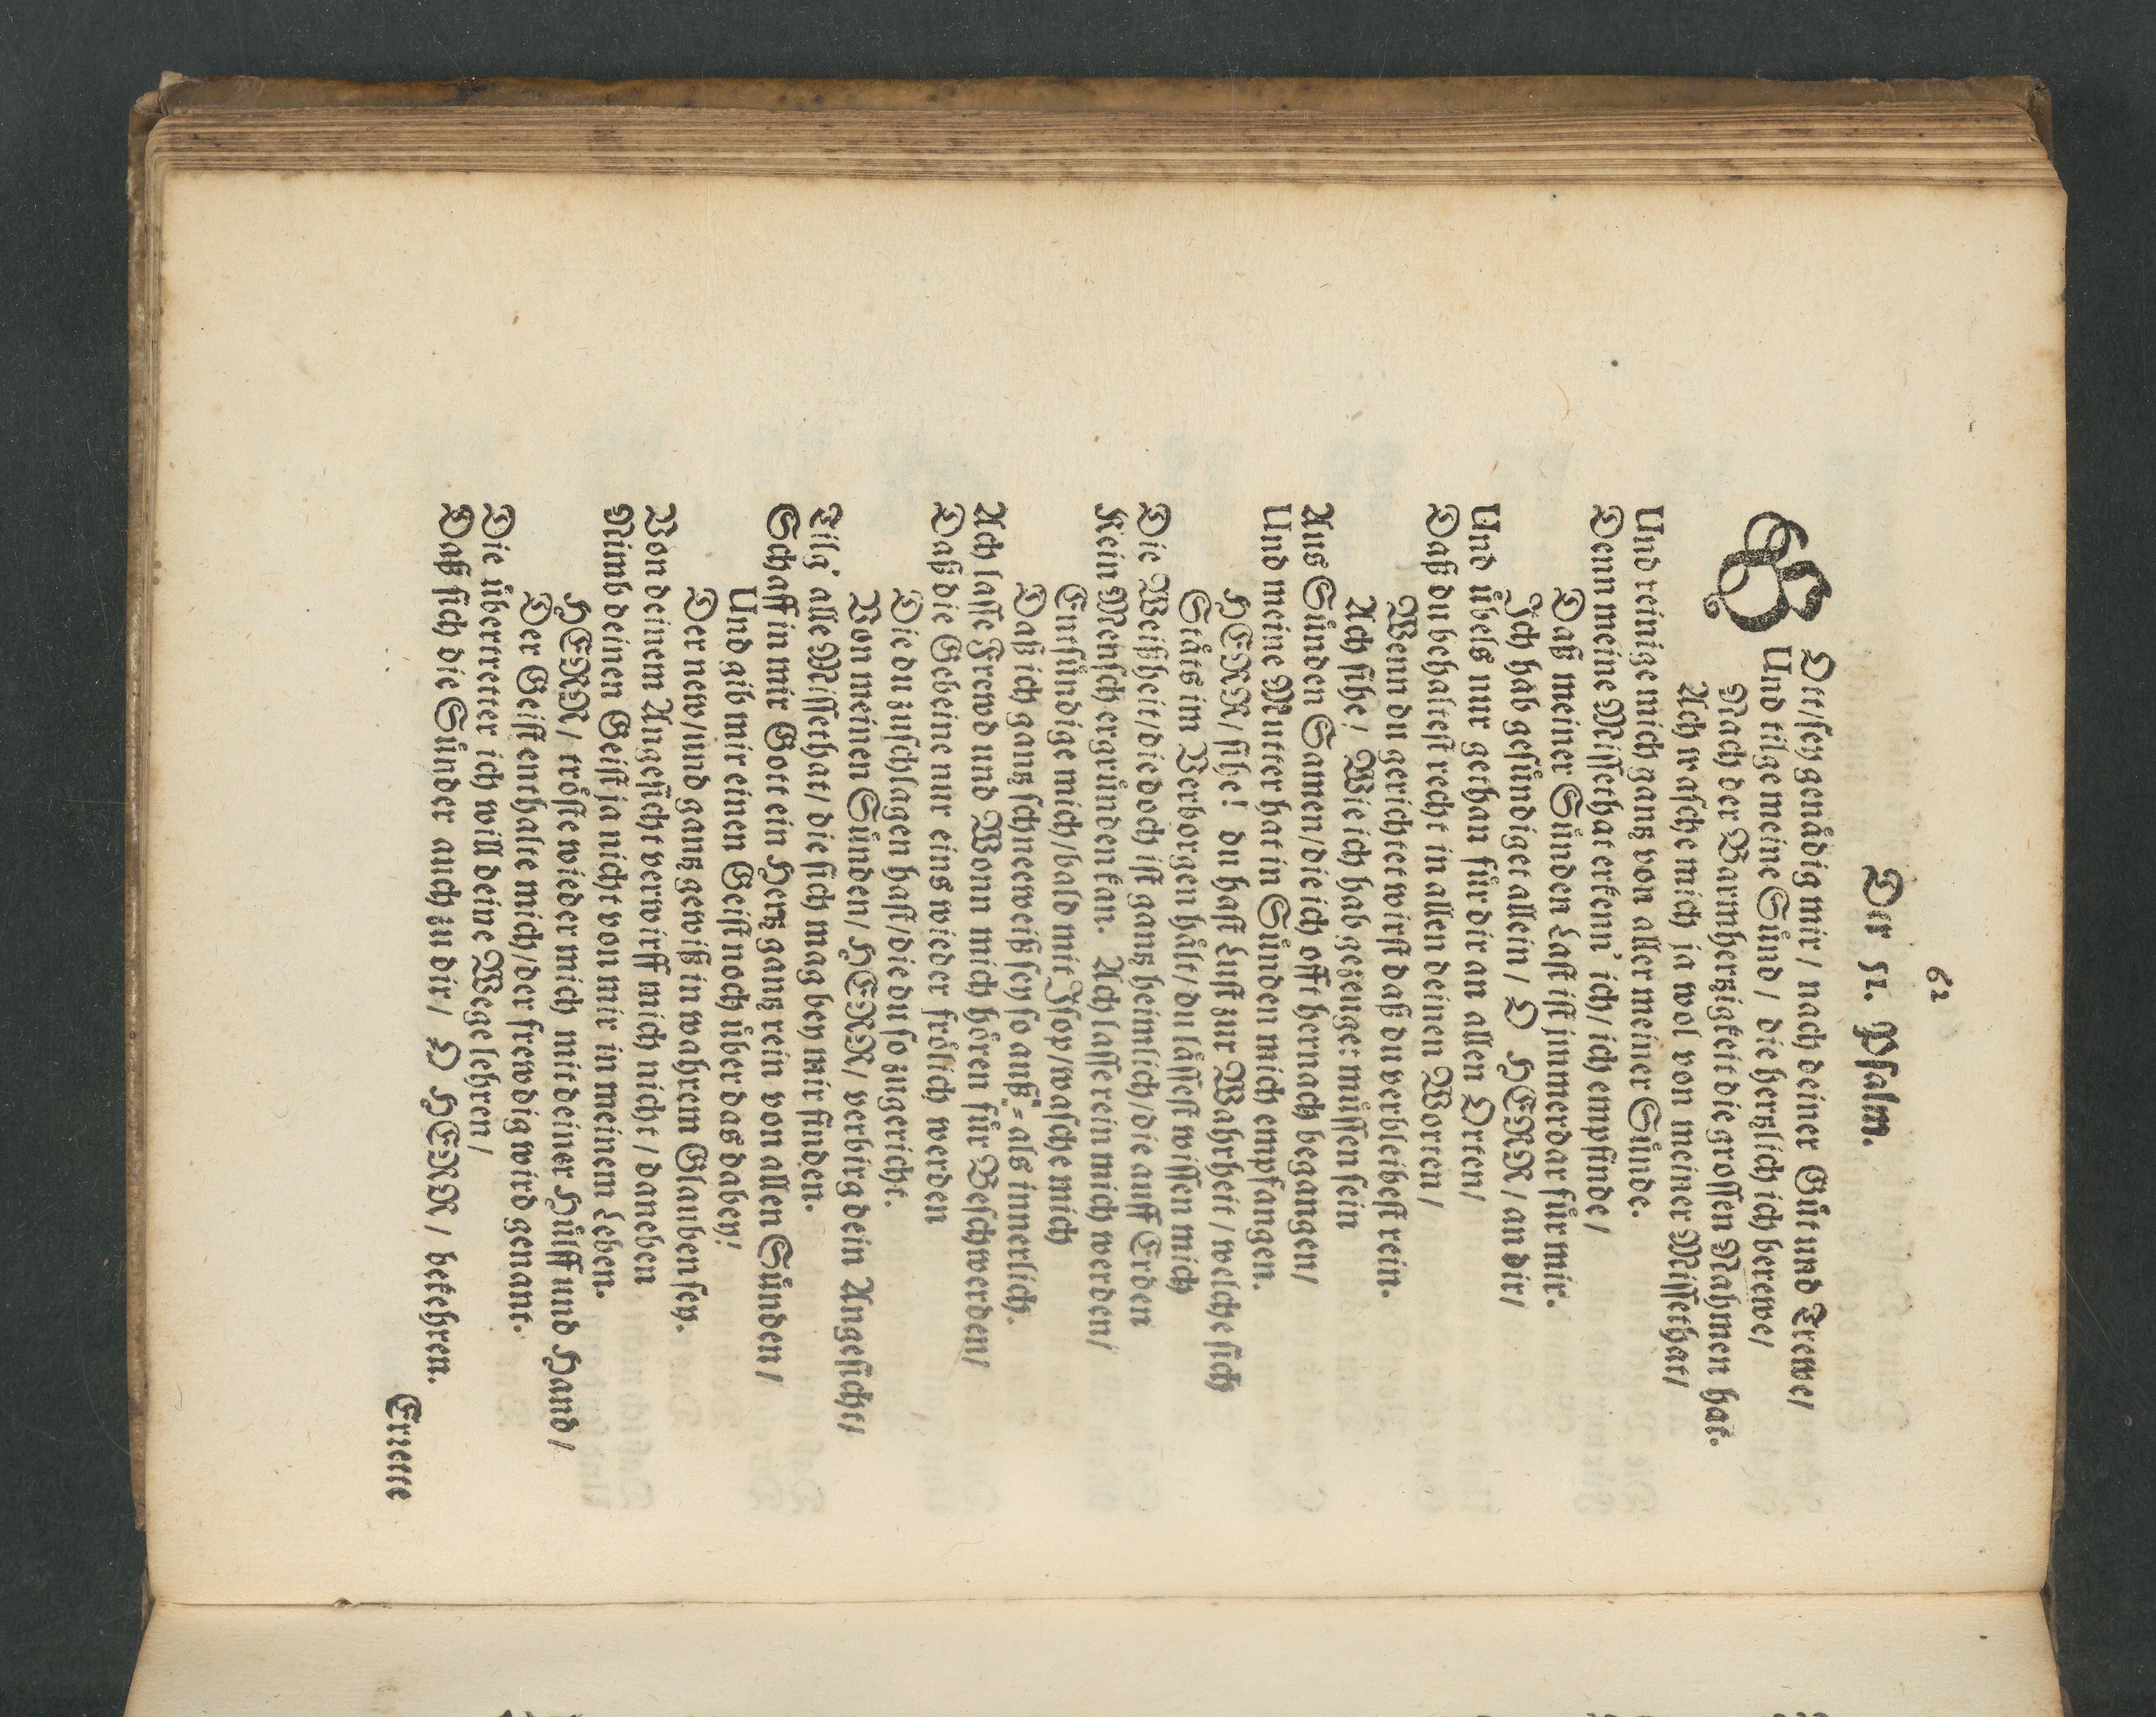 62
Der 51. Psalm.
GOtt/ sey genådig mir/ nach deiner Gůt und Trewe/
Und tilge meine Sůnd/ die herzlich ich berewe/
Nach der Barmherzigkeit die grossen Nahmen hat.
Ach wasche mich ja wol von meiner Missethat/
Und reinige mich ganz von aller meiner Sůnde.
Denn meine Missethat erkenn' ich/ ich empfinde/
Daß meiner Sůnden Last ist jmmerdar fůr mir.
Ich hab gesůndiget allein/ O HERR/ an dir/
Und ůbels nur gethan fůr dir an allen Orten/
Daß du behaltest recht in allen deinen Worten/
Wenn du gerichtet wirst daß du verbleibest rein.
Ach sihe! Wie ich hab gezeuget můssen sein
Aus Sůnden Samen/ die ich offt hernach begangen/
Und meine Mutter hat in Sůnden mich empfangen.
HERR/ sihe! du hast Lust zur Wahrheit/ welche sich
Ståts im Verborgen hålt/ du låssest wissen mich
Die Weißheit/ die doch ist ganz heimlich/ die auff Erden
Kein Mensch ergrůnden kan. Ach lasse rein mich werden/
Entsůndige mich/ bald mit Jsop/ wasche mich
Daß ich ganz schneeweiß sey so auß= als innerlich.
Ach lasse Frewd und Wonn mich hören fůr Beschwerden/
Daß die Gebeine nur eins wieder frölich werden
Die du zuschlagen hast/ die du so zugericht.
Von meinen Sůnden/ HERR/ verbirg dein Angesicht/
Tilg' alle Missethat/ die sich mag bey mir finden.
Schaff in mir Gott ein Herz ganz rein von allen Sůnden/
Und gib mir einen Geist noch ůber das dabey/
Der new/ und ganz gewiß in wahrem Glauben sey.
Von deinem Angesicht verwirff mich nicht/ daneben
Nimb deinen Geist ja nicht von mir in meinem Leben.
HERR/ tröste wieder mich mit deiner Hůlff und Hand/
Der Geist enthalte mich/ der frewdig wird genant.
Die ůbertretter ich will deine Wege lehren/
Daß sich die Sůnder auch zu dir/ O HERR/ bekehren.
Errette